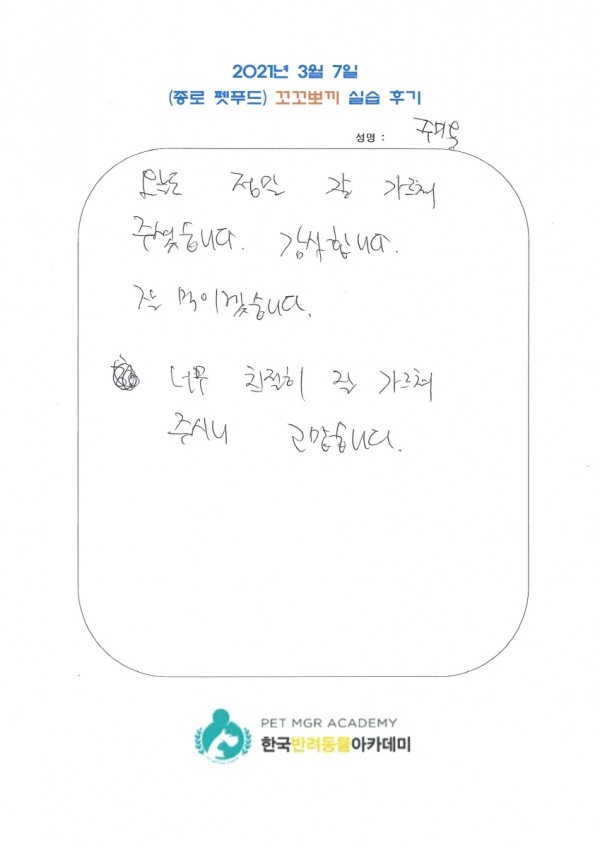 2021년 3월 7일
(종로 펫푸드) 꼬꼬뽀끼 실습 후기
성명 : 주미옥
오늘도 정말 잘 가르쳐
주셨습니다. 감사합니다.
잘 먹이겠습니다.
너무 친절히 잘 가르쳐
주시니 고맙습니다.
PET MGR ACADEMY
한국반려동물아카데미